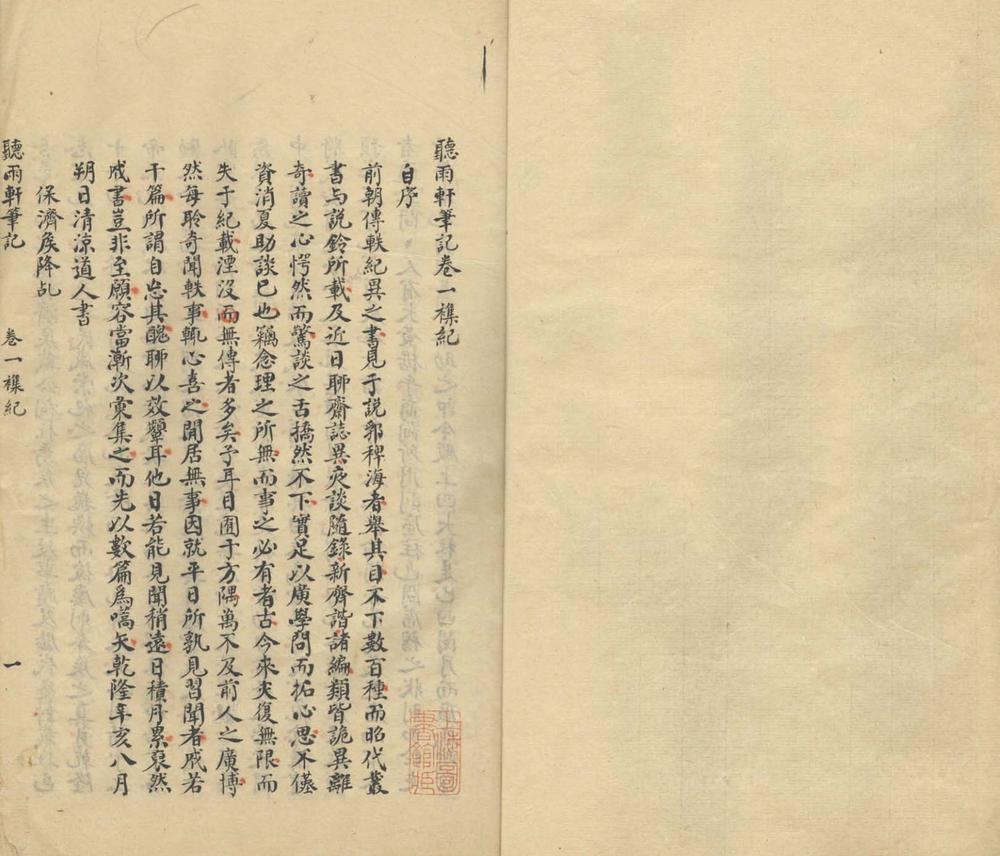 聽雨軒筆記卷一襍紀
自序
前朝傳軼紀異之書見于說郛稗海者舉其目不下數百種而昭代叢
書与說鈴所載及近日聊齋誌異夜談隨錄新齊諧諸編類皆詭異離
奇讀之心愕然而驚談之舌撟然不下實足以廣學問而拓心思不僅
資消夏助談已也竊念理之所無而事之必有者古今來夫復無限而
失于紀載湮沒而無傳者多矣予耳目囿于方隅萬不及前人之廣博
然每聆奇聞軼事輒心喜之閒居無事因就平日所孰見習聞者成若
干篇所謂自忘其醜聊以效顰耳他日若能見聞稍遠日積月累裒然
成書豈非至願容當漸次彙集之而先以數篇爲嚆矢乾隆辛亥八月
朔日清凉道人書
保濟矦降乩
聽雨軒筆記 卷一襍紀 一